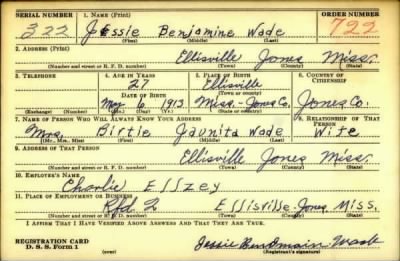 SERIAL NUMBER 1. NAME (Print) ORDER NUMBER
322 Jessie Benjamine Wade 722
(First) (Middle) (Last)
2. ADDRESS (Print)
Ellisville Jones Miss.
(Number and street or R. F. D. number) (Town) (County) (State)
3. TELEPHONE 4. AGE IN YEARS 5. PLACE OF BIRTH 6. COUNTRY OF CITIZENSHIP
27 Ellisville
DATE OF BIRTH (Town or county)
May 6 1913 Miss.-Jones Co. Jones Co.
(Exchange) (Number) (Mo.) (Day) (Yr.) (State or country)
7. NAME OF PERSON WHO WILL ALWAYS KNOW YOUR ADDRESS 8. RELATIONSHIP OF THAT PERSON
Mrs. Birtie Jaunita Wade Wife
(Mr., Mrs., Miss) (First) (Middle) (Last)
9. ADDRESS OF THAT PERSON
Ellisville Jones Miss.
(Number and street or R. F. D. number) (Town) (County) (State)
10. EMPLOYER'S NAME
Charlie Ellzey
11. PLACE OF EMPLOYMENT OR BUSINESS
Rfd 2 Ellisville Jones Miss.
(Number and street or R. F. D. number) (Town) (County) (State)
I AFFIRM THAT I HAVE VERIFIED ABOVE ANSWERS AND THAT THEY ARE TRUE.
REGISTRATION CARD
D. S. S. Form 1 (over) (Registrant's signature)
Jessie Wade